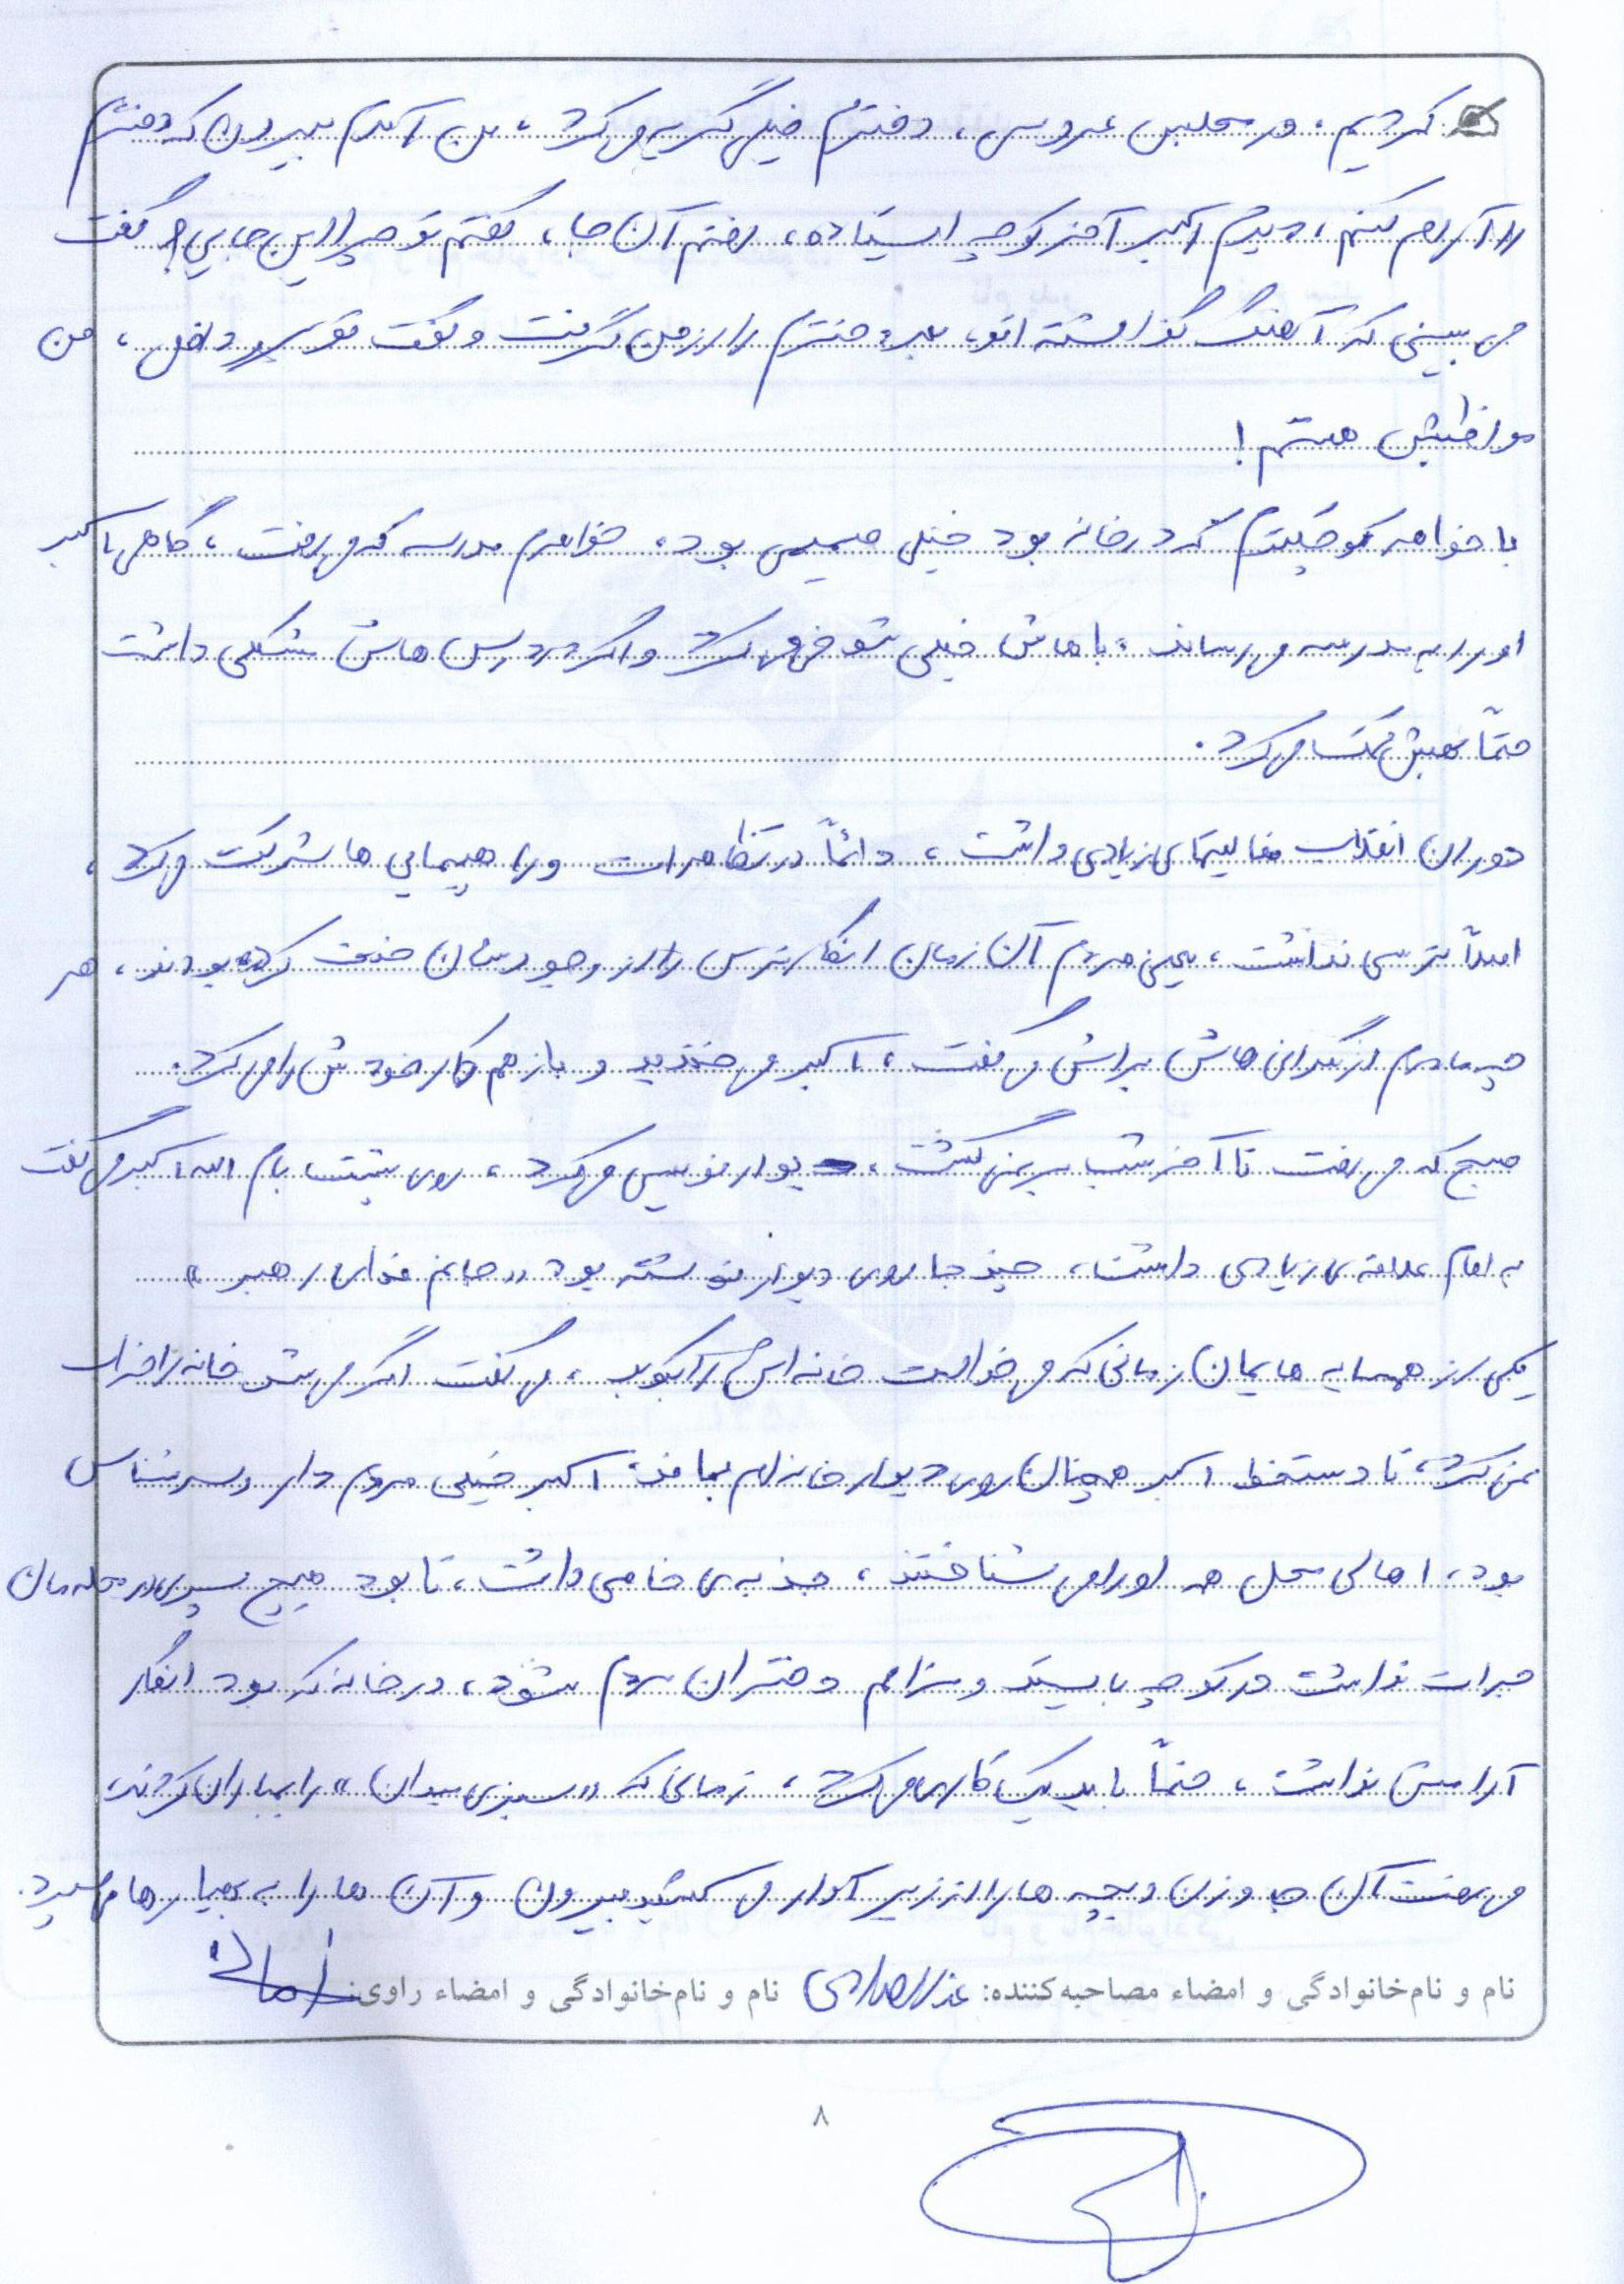 کردیم، در مجلس عروسی، دخترم خیلی گریه می‌کرد، من آمدم بیرون که دخترم
را آرام کنم، دیدم اکبر آخر کوچه ایستاده، رفتم آن جا، گفتم تو چرا این جایی؟ گفت
می بینی که آهنگ گذاشته اند، بعد دخترم را از من گرفت و گفت تو برو داخل، من
مواظبش هستم!
با خواهر کوچکترم که در خانه بود خیلی صمیمی بود، خواهرم مدرسه که می رفت، گاهی اکبر
او را به مدرسه می رساند، باهاش خیلی شوخی می کرد و اگر در درس هاش مشکلی داشت
حتماً بهش کمک می کرد.
دوران انقلاب فعالیتهای زیادی داشت، دائماً در تظاهرات و راهپیمایی ها شرکت می کرد،
اصلاً ترسی نداشت، یعنی مردم آن زمان انگار ترس را از وجودشان حذف کرده بودند، هر
چه مادرم از نگرانی هاش براش می گفت، اکبر می خندید و باز هم کار خودش را می کرد.
صبح که می رفت تا آخر شب بر نمی گشت، دیوار نویسی می کرد، روی پشت بام الله اکبر می گفت
به امام علاقه ی زیادی داشت، چند جا روی دیوار نوشته بود «جانم فدای رهبر»
یکی از همسایه هایمان زمانی که می خواست خانه اش را بکوبد، می گفت اگر می شد خانه را خراب
نمی کردم، تا دستخط اکبر همچنان روی دیوار خانه ام بماند. اکبر خیلی مردم دار و سرشناس
بود، اهالی محل همه او را می شناختند، جذبه ی خاصی داشت، تا بود هیچ پسری در محله مان
جرات نداشت در کوچه بایستد و مزاحم دختران مردم شود، در خانه که بود انگار
آرامش نداشت، حتماً باید یک کاری می کرد، زمانی که «سبزی میدان» را بمباران کردند،
می رفت آن جا و زن و بچه ها را از زیر آوار می کشید بیرون و آن ها را به بهیار ها می سپرد.
نام و نام‌خانوادگی و امضاء مصاحبه‌کننده: نام و نام‌خانوادگی و امضاء راوی:
۸